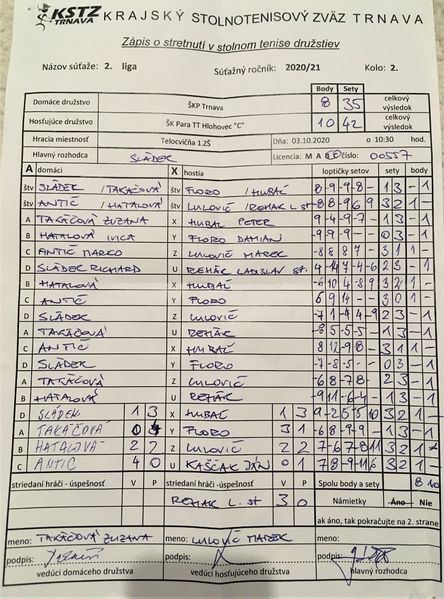 KSTZ TRNAVA KRAJSKÝ STOLNOTENISOVÝ ZVÄZ TRNAVA
Zápis o stretnutí v stolnom tenise družstiev
Názov súťaže: 2. liga Súťažný ročník: 2020/21 Kolo: 2.
Body Sety
Domáce družstvo ŠKP Trnava 8 35 celkový výsledok
Hosťujúce družstvo ŠK Para TT Hlohovec "C" 10 42 celkový výsledok
Hracia miestnosť Telocvičňa 1.ZŠ Dňa: 03.10.2020 o 10:30 hod.
Hlavný rozhodca SLÁDEK Licencia: M A číslo: 00557
A domáci X hostia loptičky setov sety body
štv SLÁDEK /TAKÁČOVÁ štv FLORO /HUBAČ 8-9-9-8- 13 -1
štv ANTIČ /HATALOVÁ štv LULOVIČ /REHÁK L. st 32 1-
A TAKÁČOVÁ ZUZANA X HUBAČ PETER 13 -1
B HATALOVÁ IVICA Y FLORO DAMIÁN -9-9-9- 03 -1
C ANTIČ MARKO Z LULOVIČ MAREK 31 1-
D SLÁDEK RICHARD U REHÁK LADISLAV st. 23 -1
B HATALOVÁ X HUBAČ 32 1-
C ANTIČ Y FLORO 6 9 14 30 1-
D SLÁDEK Z LULOVIČ 23 -1
A TAKÁČOVÁ U REHÁK -8 5-5-5 13 -1
C ANTIČ X HUBAČ 8 12-9 8 31 1-
D SLÁDEK Y FLORO -7-8-5 03 -1
A TAKÁČOVÁ Z LULOVIČ 23 -1
B HATALOVÁ U REHÁK -9 11-6-4 13 -1
D SLÁDEK 1 3 X HUBAČ 1 3 9-2 5 5 10 32 1-
A TAKÁČOVÁ 0 4 Y FLORO 3 1 -6 8-9-9 13 -1
B HATALOVÁ 2 2 Z LULOVIČ 2 2 32 1-
C ANTIČ 4 0 U KAŠČÁK JÁN 0 1 32 1-
striedaní hráči - úspešnosť V P striedaní hráči - úspešnosť V P Spolu body a sety 8 10
REHÁK L. st 3 0 Námietky Áno Nie
ak áno, tak pokračujte na 2. strane
meno: TAKÁČOVÁ ZUZANA meno: LULOVIČ MAREK
podpis: podpis: podpis:
vedúci domáceho družstva vedúci hosťujúceho družstva hlavný rozhodca